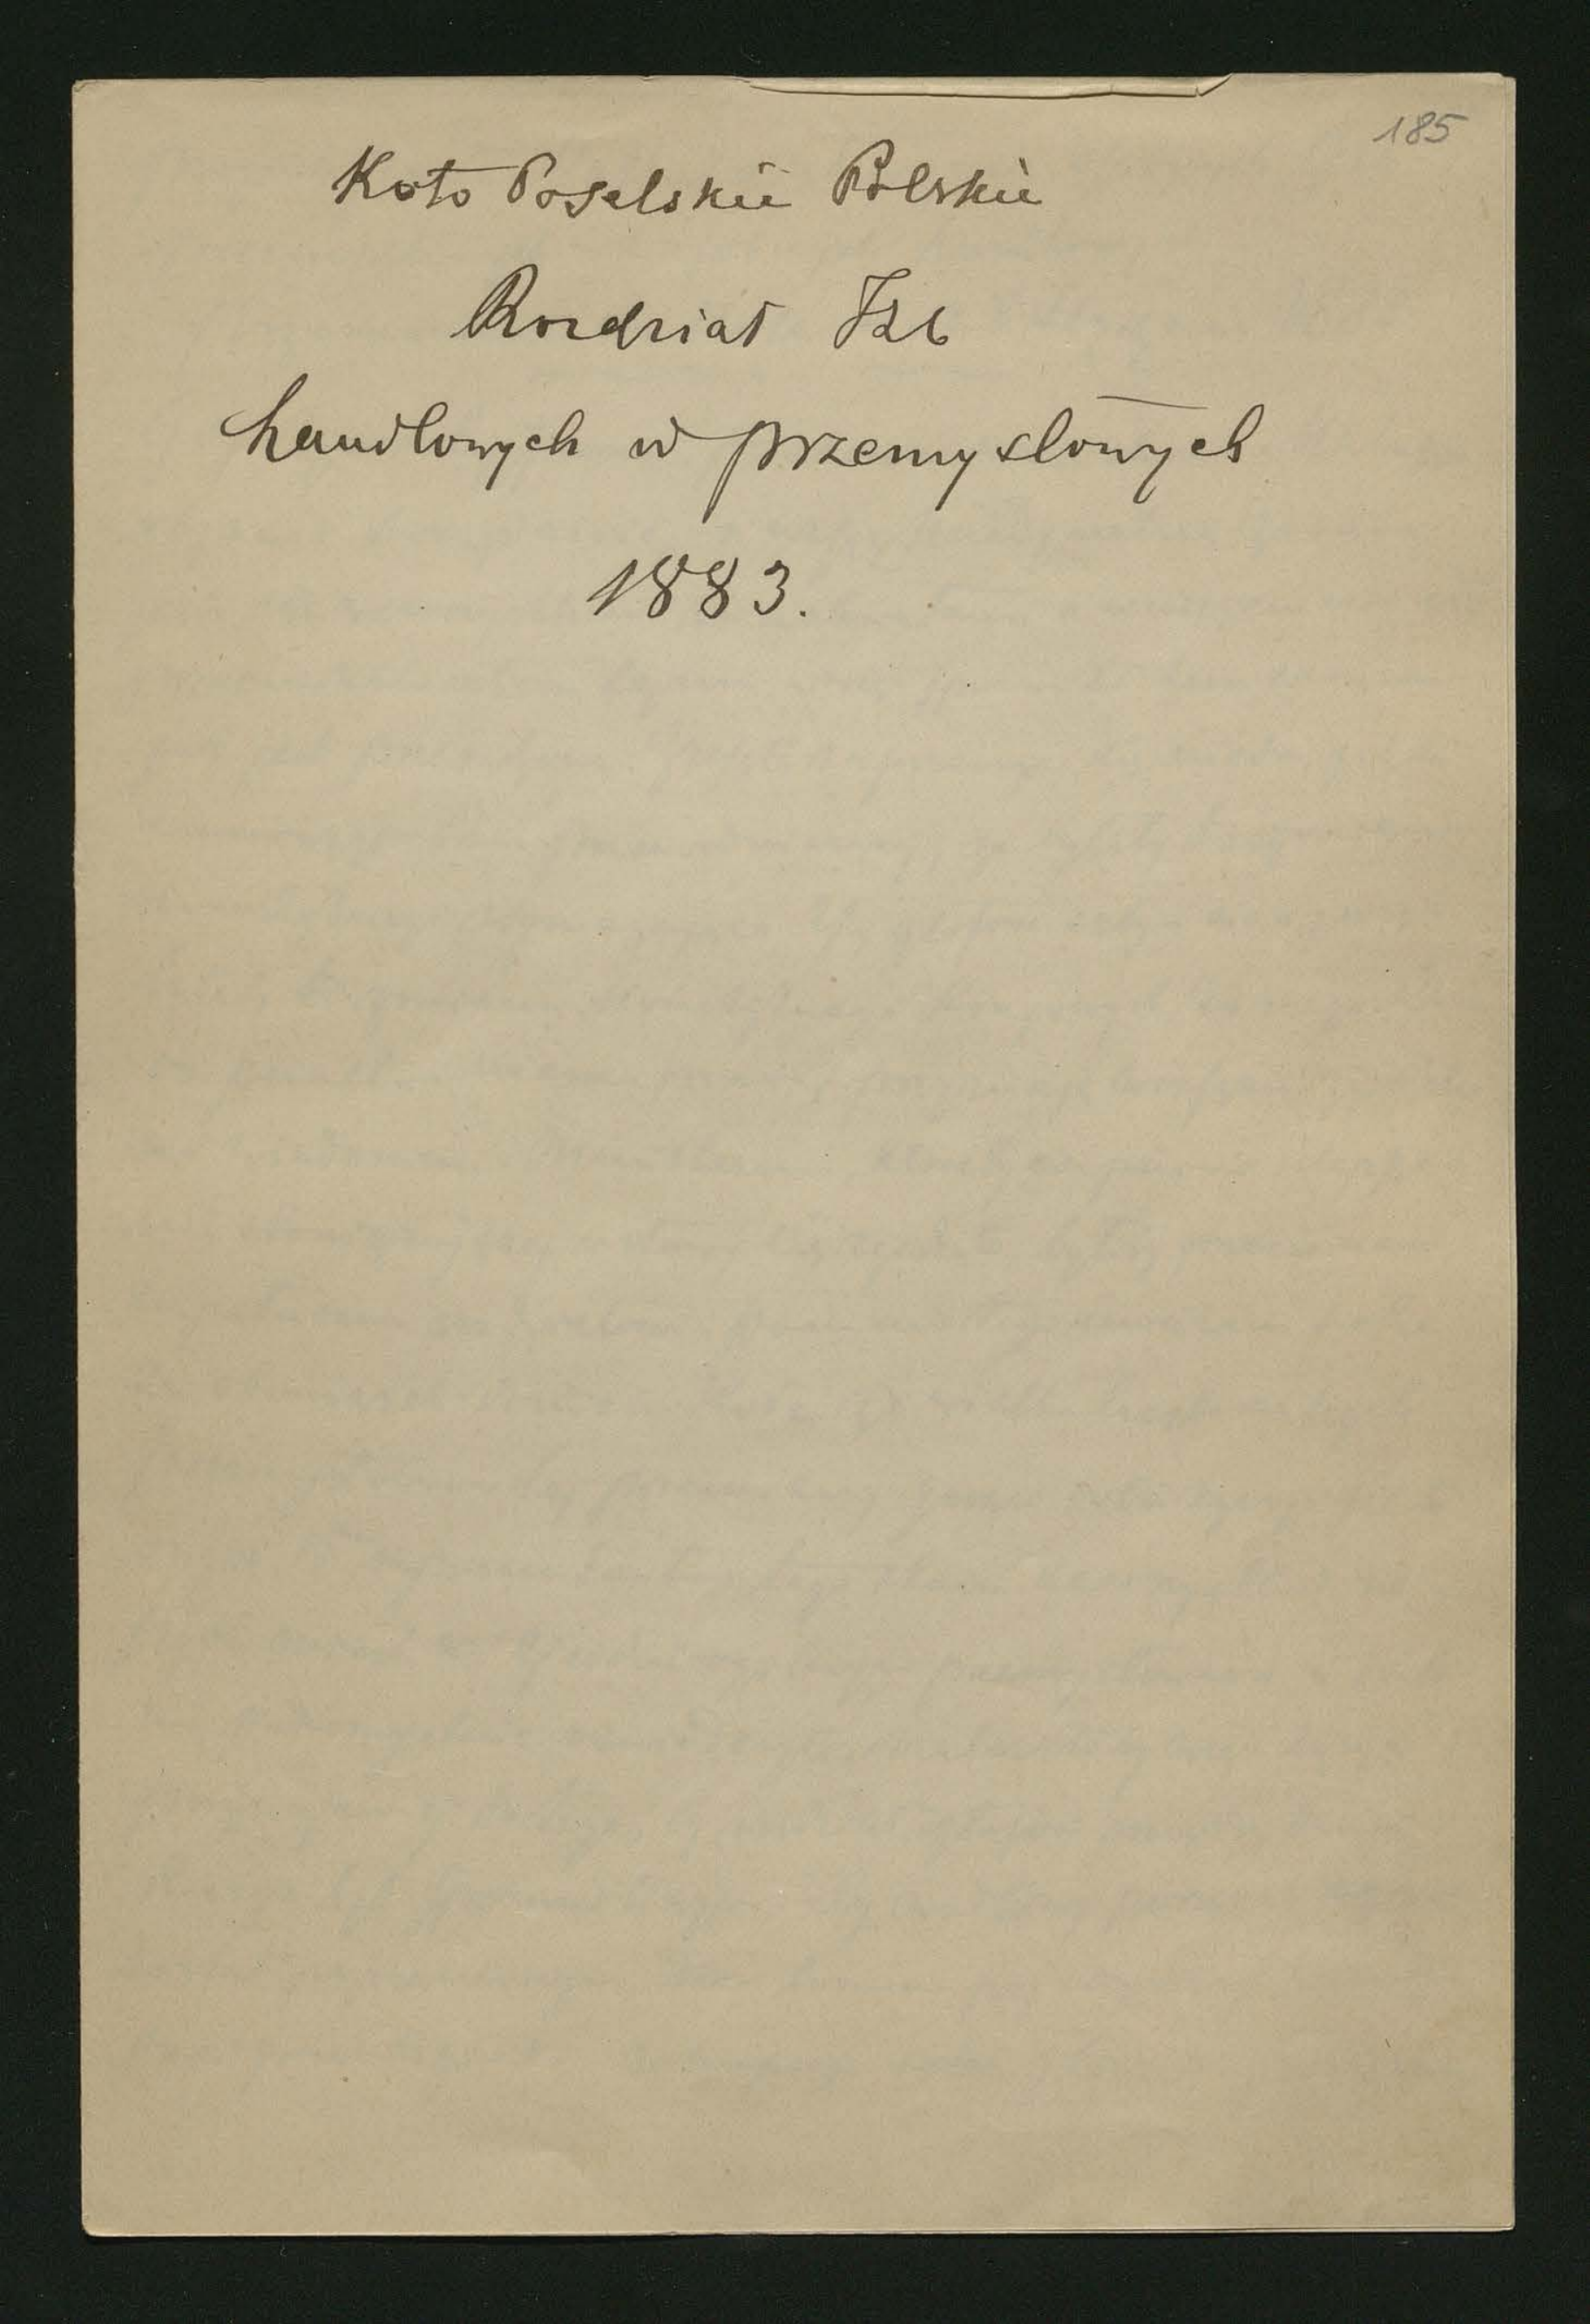 185
Koło Poselskie Polskie
Rozdział Izb
handlowych w przemysłowych
1883.